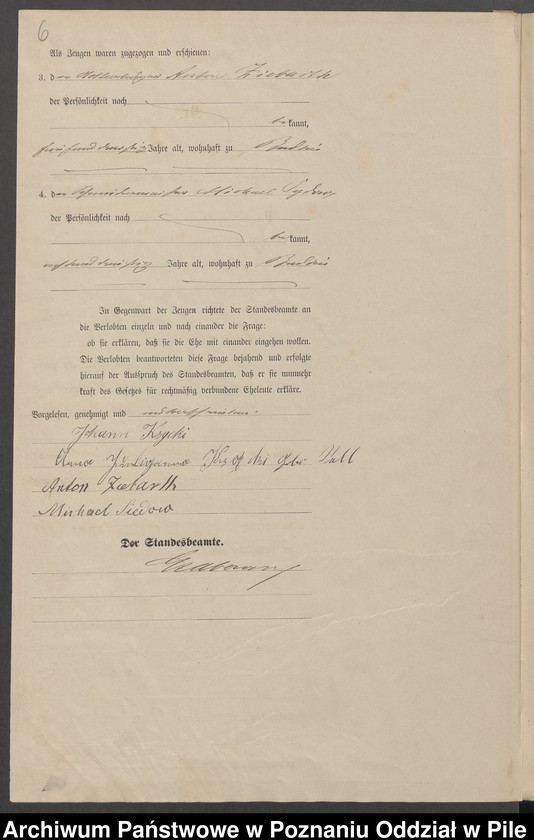 6
Als Zeugen waren zugezogen und erschienen:
3. der Anton Ziebarth
der Persönlichkeit nach
bekannt,
fünfunddreißig Jahre alt, wohnhaft zu
4. der Schneidermeister Michael
der Persönlichkeit nach
bekannt,
Jahre alt, wohnhaft zu
In Gegenwart der Zeugen richtete der Standesbeamte an
die Verlobten einzeln und nach einander die Frage:
ob sie erklären, daß sie die Ehe mit einander eingehen wollen.
Die Verlobten beantworteten diese Frage bejahend und erfolgte
hierauf der Ausspruch des Standesbeamten, daß er sie nunmehr
kraft des Gesetzes für rechtmäßig verbundene Eheleute erkläre.
Vorgelesen, genehmigt und unterschrieben.
Johann
Anna geb.
Anton Ziebarth
Michael Siedow
Der Standesbeamte.
Archiwum Państwowe w Poznaniu Oddział w Pile